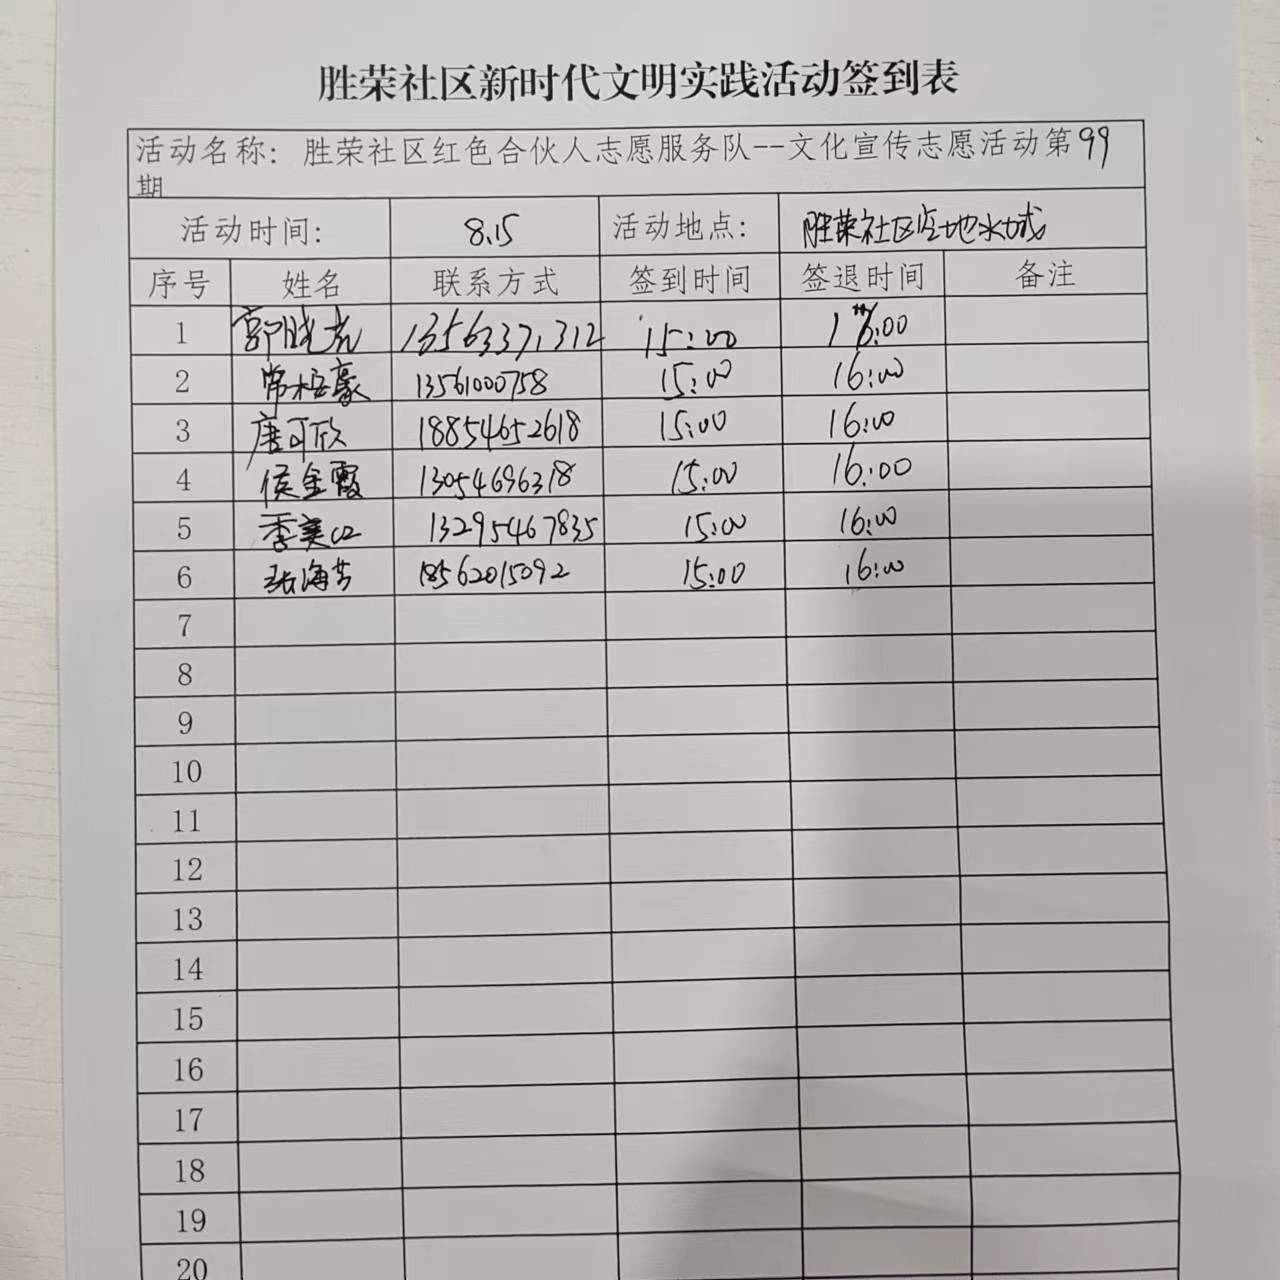 胜荣社区新时代文明实践活动签到表
活动名称：胜荣社区红色合伙人志愿服务队--文化宣传志愿活动第99
期
活动时间： 8.15 活动地点： 胜荣社区空地水城
序号 姓名 联系方式 签到时间 签退时间 备注
1 15:00 16:00
2 13561000758 15:00 16:00
3 唐可欣 18854652618 15:00 16:00
4 侯金霞 13054696318 15:00 16:00
5 季美 13295467835 15:00 16:00
6 张海芳 18562015092 15:00 16:00
7
8
9
10
11
12
13
14
15
16
17
18
19
20